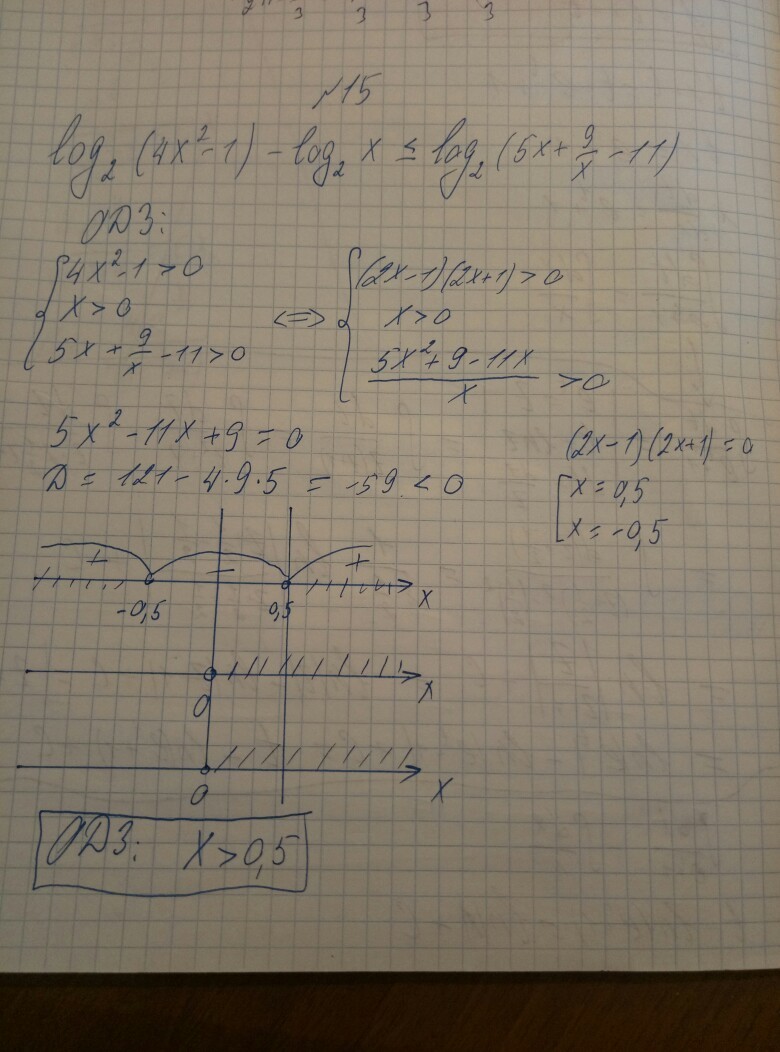 №15
log₂ (4x²-1) - log₂ x ≤ log₂ (5x + 9/x - 11)
ОДЗ:
{ 4x²-1 > 0
x > 0
5x + 9/x - 11 > 0
<=>
{ (2x-1)(2x+1) > 0
x > 0
(5x²+9-11x)/x > 0
5x² - 11x + 9 = 0
D = 121 - 4·9·5 = -59 < 0
(2x-1)(2x+1) = 0
[ x = 0,5
x = -0,5
+ - +
-0,5 0,5 x
0 x
0 x
ОДЗ: x > 0,5